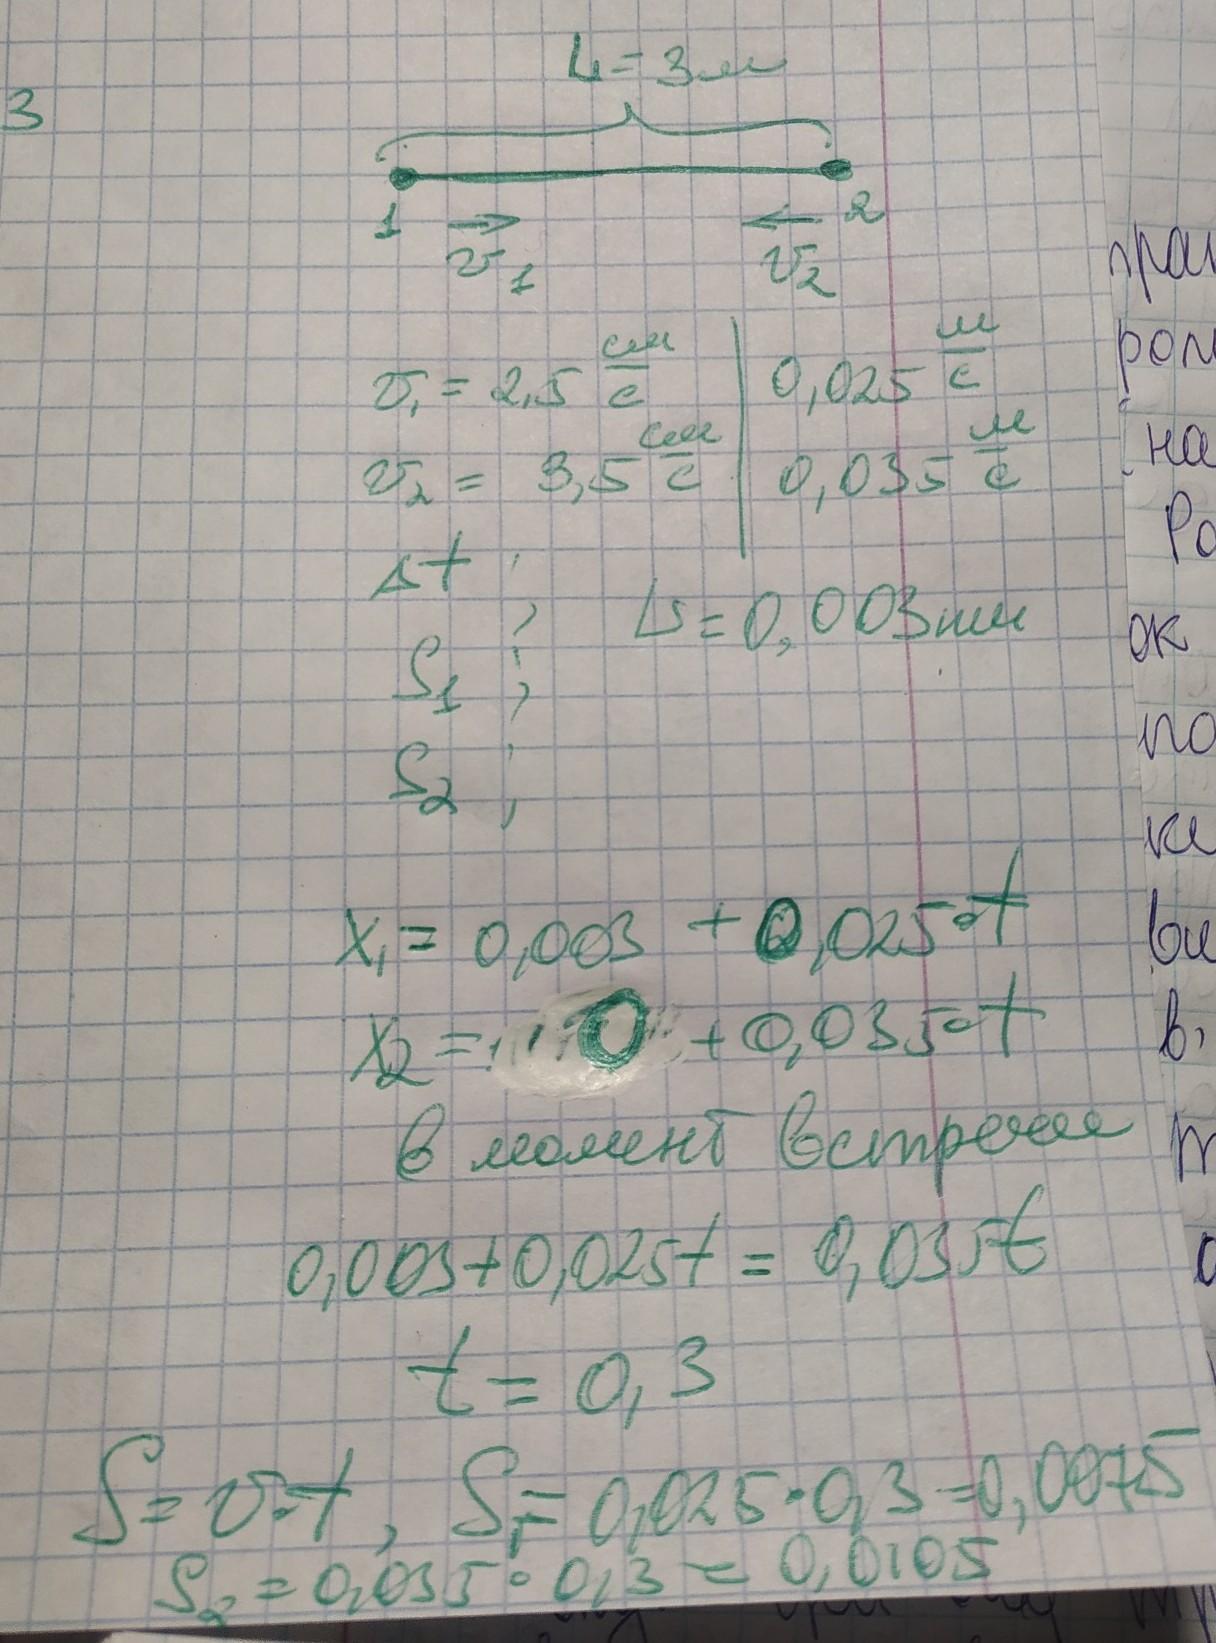 L = 3 м
3
1 2
v₁ v₂
v₁ = 2,5 см/с | 0,025 м/с
v₂ = 3,5 см/с | 0,035 м/с
Δt ;
L = 0,003 мм
S₁ ;
S₂ ;
x₁ = 0,003 + 0,025·t
x₂ = 0 + 0,035·t
в момент встречи
0,003+0,025t = 0,035t
t = 0,3
S = v·t, S₁ = 0,025·0,3 = 0,0075
S₂ = 0,035·0,3 = 0,0105
на
ок
по